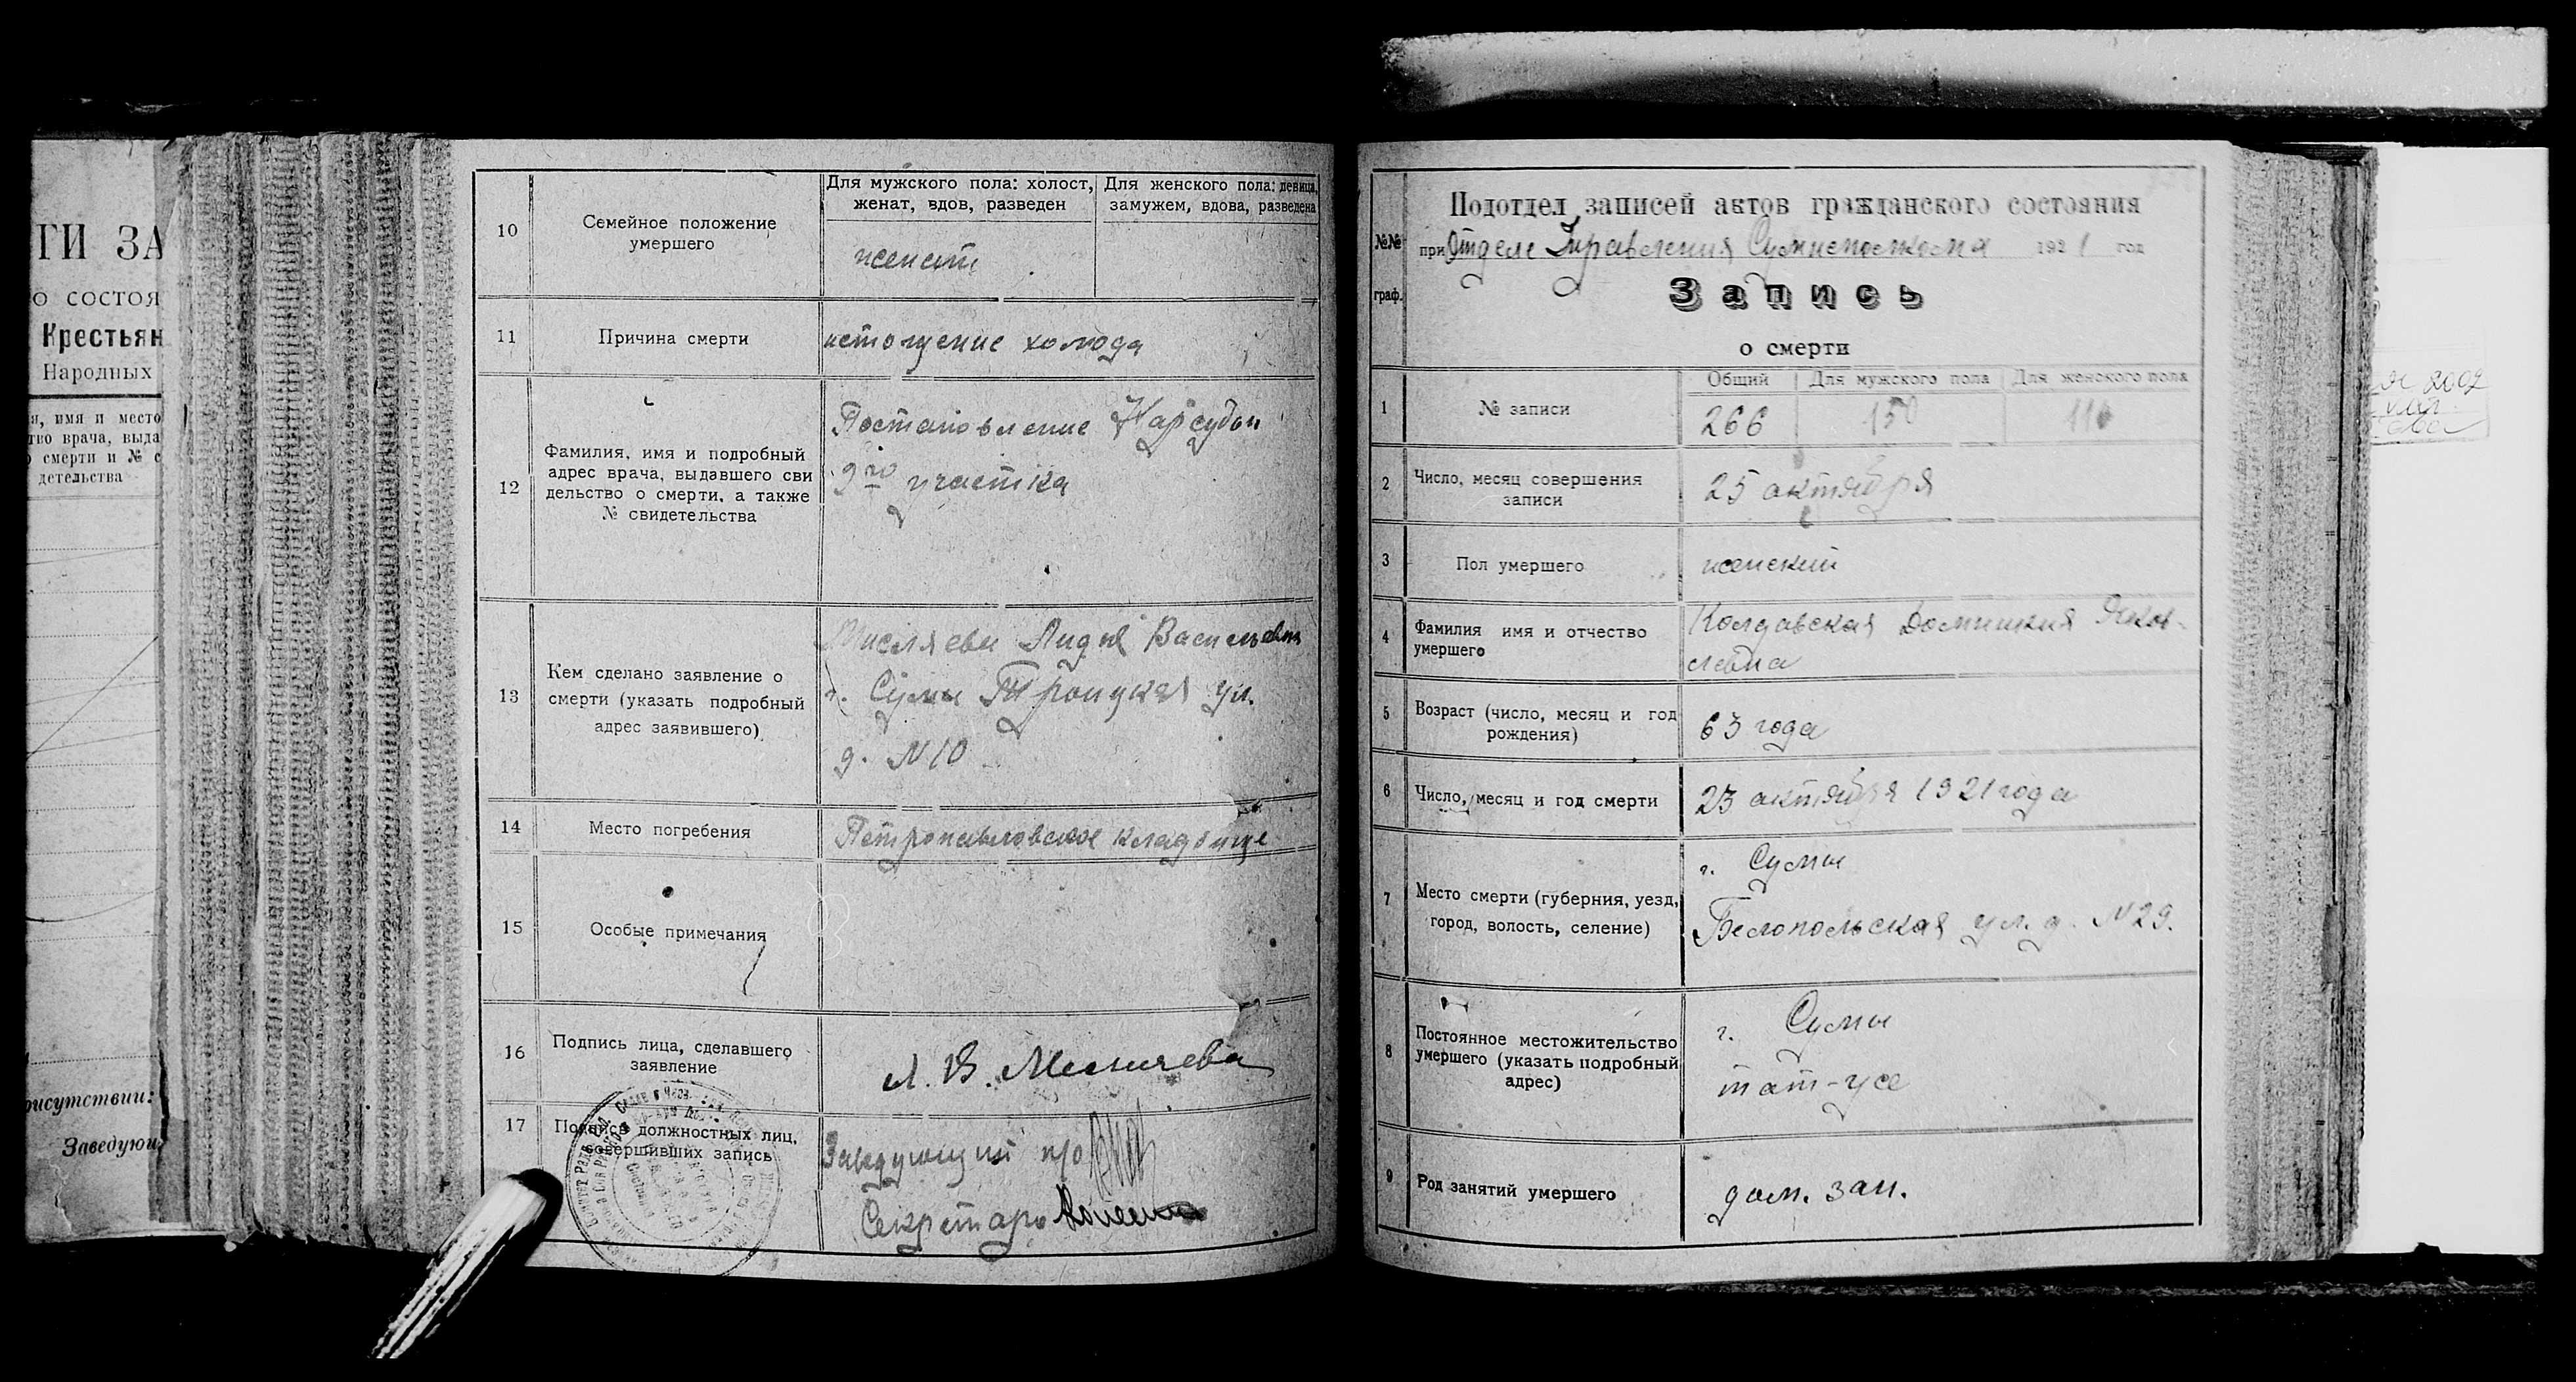 ТИ ЗА
о состоя
Крестьян
Народных
я, имя и место
тво врача, выда
о смерти и № с
детельства
рисутствии:
Заведующ
10
Семейное положение
умершего
Для мужского пола: холост,
женат, вдов, разведен
Для женского пола: девица,
замужем, вдова, разведена
женат
11
Причина смерти
истощение холода
12
Фамилия, имя и подробный
адрес врача, выдавшего сви
дельство о смерти, а также
№ свидетельства
Постановление Нарсудьи
9го участка
13
Кем сделано заявление о
смерти (указать подробный
адрес заявившего)
Лидия Васильевна
г. Сумы Троицкая ул.
д. №10
14
Место погребения
Петропавловское кладбище
15
Особые примечания
16
Подпись лица, сделавшего
заявление
Л. В.
17
Подписи должностных лиц,
совершивших запись
Заведующий п/о
Секретарь
№№
граф.
Подотдел записей актов гражданского состояния
при Отделе Управления Сумисполкома 1921 год
Запись
о смерти
1
№ записи
Общий
Для мужского пола
Для женского пола
266
150
116
2
Число, месяц совершения
записи
25 октября
3
Пол умершего
женский
4
Фамилия имя и отчество
умершего
Колдавская Домникия Яков-
левна
5
Возраст (число, месяц и год
рождения)
63 года
6
Число, месяц и год смерти
23 октября 1921 года
7
Место смерти (губерния, уезд,
город, волость, селение)
г. Сумы
Белопольская ул. д. №29.
8
Постоянное местожительство
умершего (указать подробный
адрес)
г. Сумы
там-же
9
Род занятий умершего
дом. зан.
2002